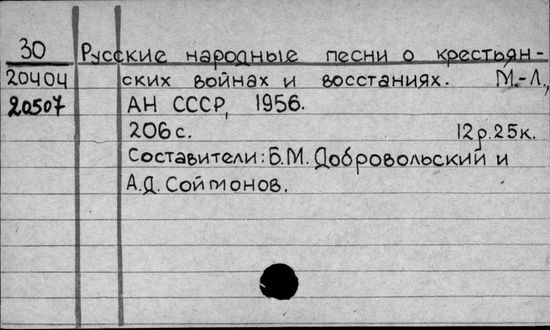 30 Русские народные песни о крестьян-
20404 ских войнах и восстаниях. М.-Л.,
20507 АН СССР, 1956.
206 с. 12р.25к.
Составители: Б.М. Добровольский и
А.Д. Соймонов.